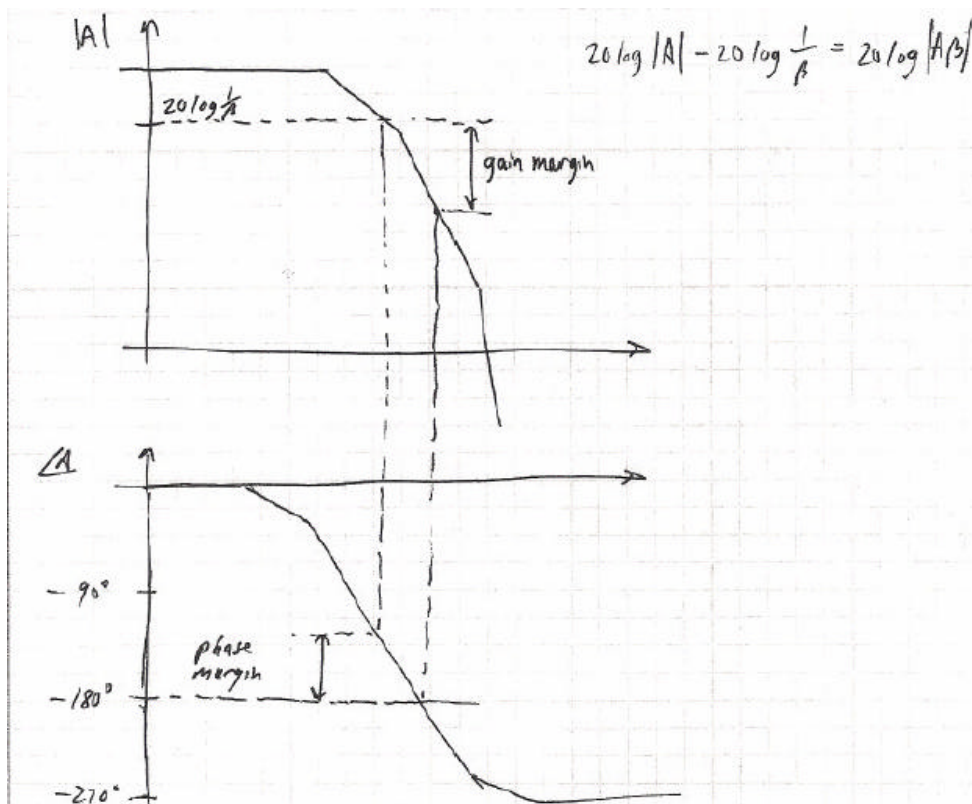 |A|
20 log |A| - 20 log 1/β = 20 log |Aβ|
20 log 1/β
gain margin
∠A
-90°
phase
margin
-180°
-270°